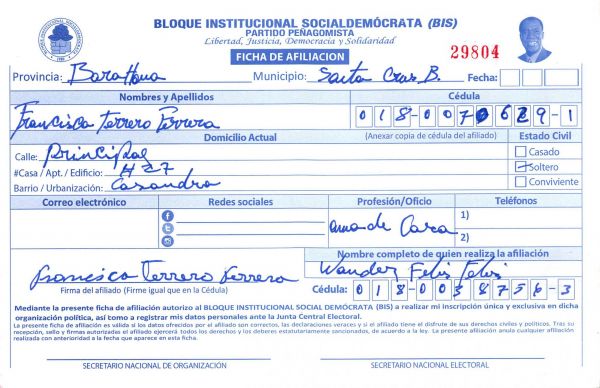 BLOQUE INSTITUCIONAL SOCIALDEMÓCRATA (BIS)
PARTIDO PEÑAGOMISTA
Libertad, Justicia, Democracia y Solidaridad
FICHA DE AFILIACION
29804
Provincia: Barahona Municipio: Santa Cruz B. Fecha:
Nombres y Apellidos
Cédula
Francisca Terrero Ferrera
018-0070629-1
Domicilio Actual
(Anexar copia de cédula del afiliado)
Estado Civil
Calle: Principal
Casado
#Casa / Apt. / Edificio: # 27
Soltero
Barrio / Urbanización: Casandra
Conviviente
Correo electrónico
Redes sociales
Profesión/Oficio
Teléfonos
ama de Casa
1)
2)
Nombre completo de quien realiza la afiliación
Wander Felis Felis
Francisca Terrero Ferrera
Firma del afiliado (Firme igual que en la Cédula)
Cédula: 018-0058756-3
Mediante la presente ficha de afiliación autorizo al BLOQUE INSTITUCIONAL SOCIAL DEMÓCRATA (BIS) a realizar mi inscripción única y exclusiva en dicha
organización política, así como a registrar mis datos personales ante la Junta Central Electoral.
La presente ficha de afiliación es válida si los datos ofrecidos por el afiliado son correctos, las declaraciones veraces y si el afiliado tiene el disfrute de sus derechos civiles y políticos. Tras su
recepción, sello y firmas autorizadas el afiliado ejercerá todos los derechos y los deberes estatutariamente sancionados, de acuerdo a la ley. La presente afiliación anula cualquier afiliación
realizada con anterioridad a la fecha que aparece en esta ficha.
SECRETARIO NACIONAL DE ORGANIZACIÓN
SECRETARIO NACIONAL ELECTORAL